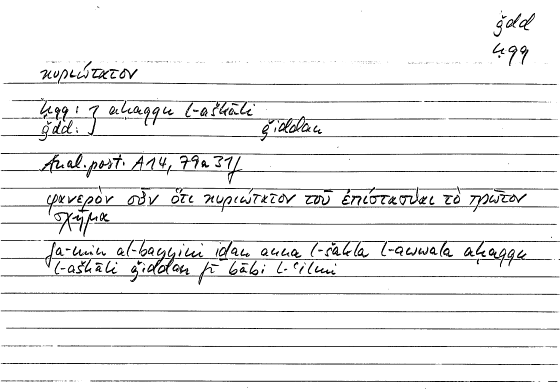 ǧdd
ḥqq
κυριώτατον
ḥqq: } aḥaqqu l-aškāli
ǧdd: } ǧiddan
Anal. post. A 14, 79a 31f
φανερὸν οὖν ὅτι κυριώτατον τοῦ ἐπίστασθαι τὸ πρῶτον
σχῆμα
fa-min al-bayyini iḏan anna l-šakla l-awwala aḥaqqu
l-aškāli ǧiddan fī bābi l-ʿilmi